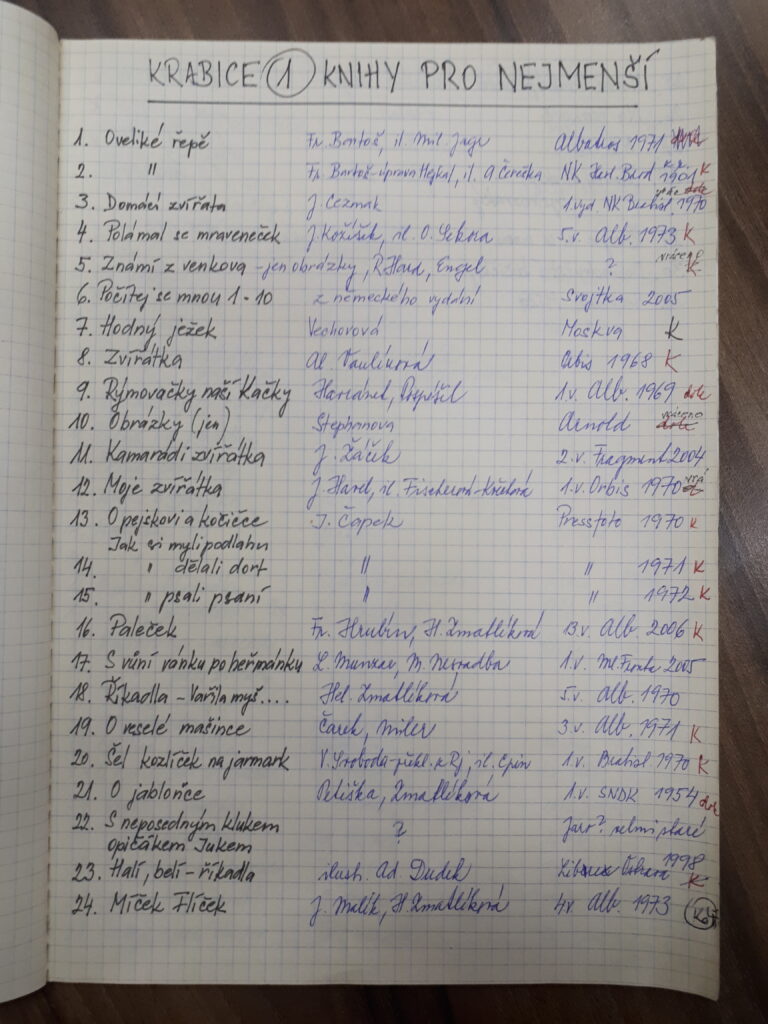 KRABICE 1 KNIHY PRO NEJMENŠÍ
1. O veliké řepě Fr. Bartoš, il. Mil. Jágr Albatros 1971
2. " Fr. Bartoš-úprava Hejkal, il. A. Čerečka NK Havl. Brod 1901 K
3. Domácí zvířata J. Cezmak 1. vyd. NK Bratisl. 1970
4. Polámal se mraveneček J. Kožíšek, il. O. Sekora 5. v. Alb. 1973 K
5. Známí z venkova - jen obrázky, R. Hard, Engel ? K
6. Počítej se mnou 1-10 z německého vydání Svojtka 2005
7. Hodný ježek Vechovová Moskva K
8. Zvířátka Al. Vaulinová Orbis 1968 K
9. Rýmovačky naší Kačky Havránek, Pospíšil 1. v. Alb. 1969 dole
10. Obrázky (jen) Stephanova Arnold
11. Kamarádi zvířátka J. Žáček 2. v. Fragment 2004
12. Moje zvířátka J. Havel, il. Fischerová-Kvěchová 1. v. Orbis 1970
13. O pejskovi a kočičce J. Čapek Pressfoto 1970 K
Jak si myli podlahu
14. " dělali dort " " 1971 K
15. " psali psaní " 1972 K
16. Paleček Fr. Hrubín, H. Zmatlíková 13. v. Alb. 2006 K
17. S vůní vánku po heřmánku L. 1. v. Ml. Fronta 2005
18. Říkadla - Vařila myš.... Hel. Zmatlíková 5. v. Alb. 1970
19. O veselé mašince Čarek, Miler 3. v. Alb. 1971 K
20. Šel kozlíček na jarmark V. Svoboda-překl. z Rj, il. Epin 1. v. Bratisl. 1970 K
21. O jabloňce Petiška, Zmatlíková 1. v. SNDK 1954 dole
22. S neposedným klukem ? Jaro? velmi staré
opičákem Jukem
23. Halí, belí - říkadla ilustr. Ad. Dudek Librex Ostrava 1998 K
24. Míček Flíček J. Malík, H. Zmatlíková 4 v. Alb. 1973